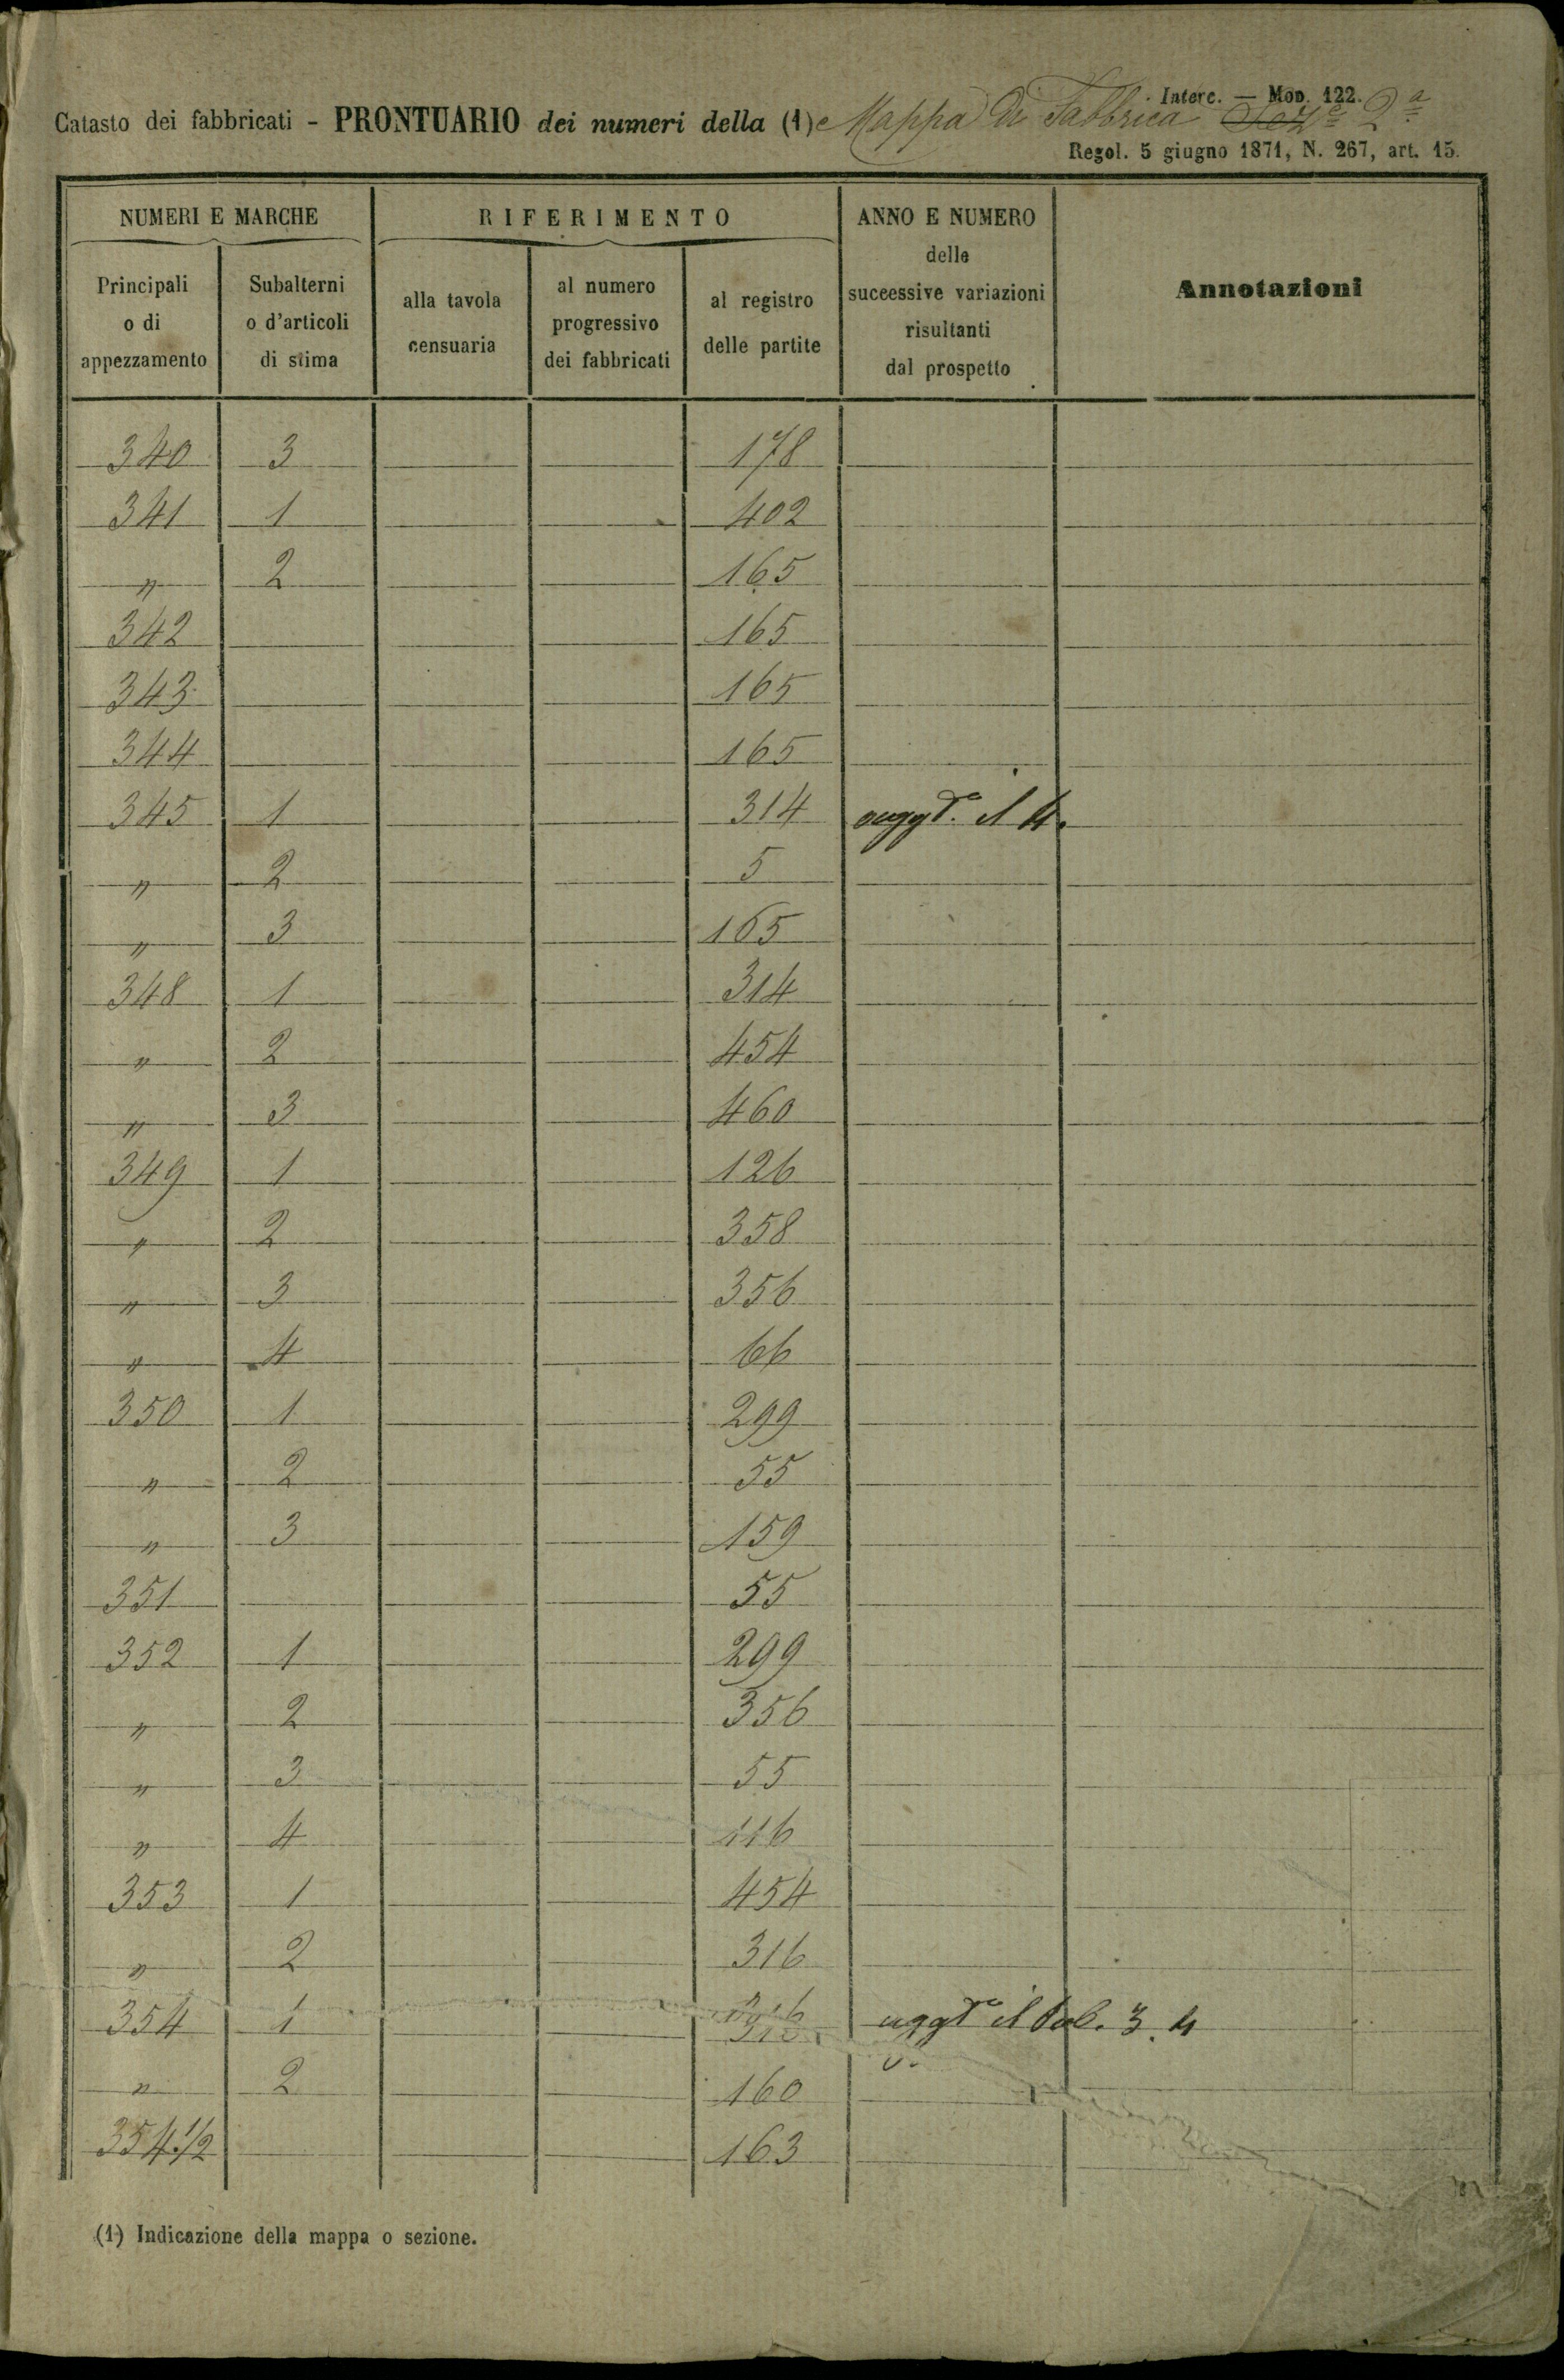 Interc. — Mod. 122.
Catasto dei fabbricati - PRONTUARIO dei numeri della (1) Mappa di Fabbrica Sez.e 2a
Regol. 5 giugno 1871, N. 267, art. 15.
NUMERI E MARCHE RIFERIMENTO ANNO E NUMERO delle suceessive variazioni risultanti dal prospetto Annotazioni
Principali o di appezzamento Subalterni o d'articoli di stima alla tavola censuaria al numero progressivo dei fabbricati al registro delle partite
340 3 178
341 1 402
" 2 165
342 165
343 165
344 165
345 1 314 aggt. il 4.
" 2 5
" 3 165
348 1 314
" 2 454
" 3 460
349 1 126
" 2 358
" 3 356
" 4 66
350 1 299
" 2 55
" 3 159
351 55
352 1 299
" 2 356
" 3 55
" 4 116
353 1 454
" 2 316
354 1 316 aggt il sub. 3. 4
" 2 160
354 1/2 163
(1) Indicazione della mappa o sezione.